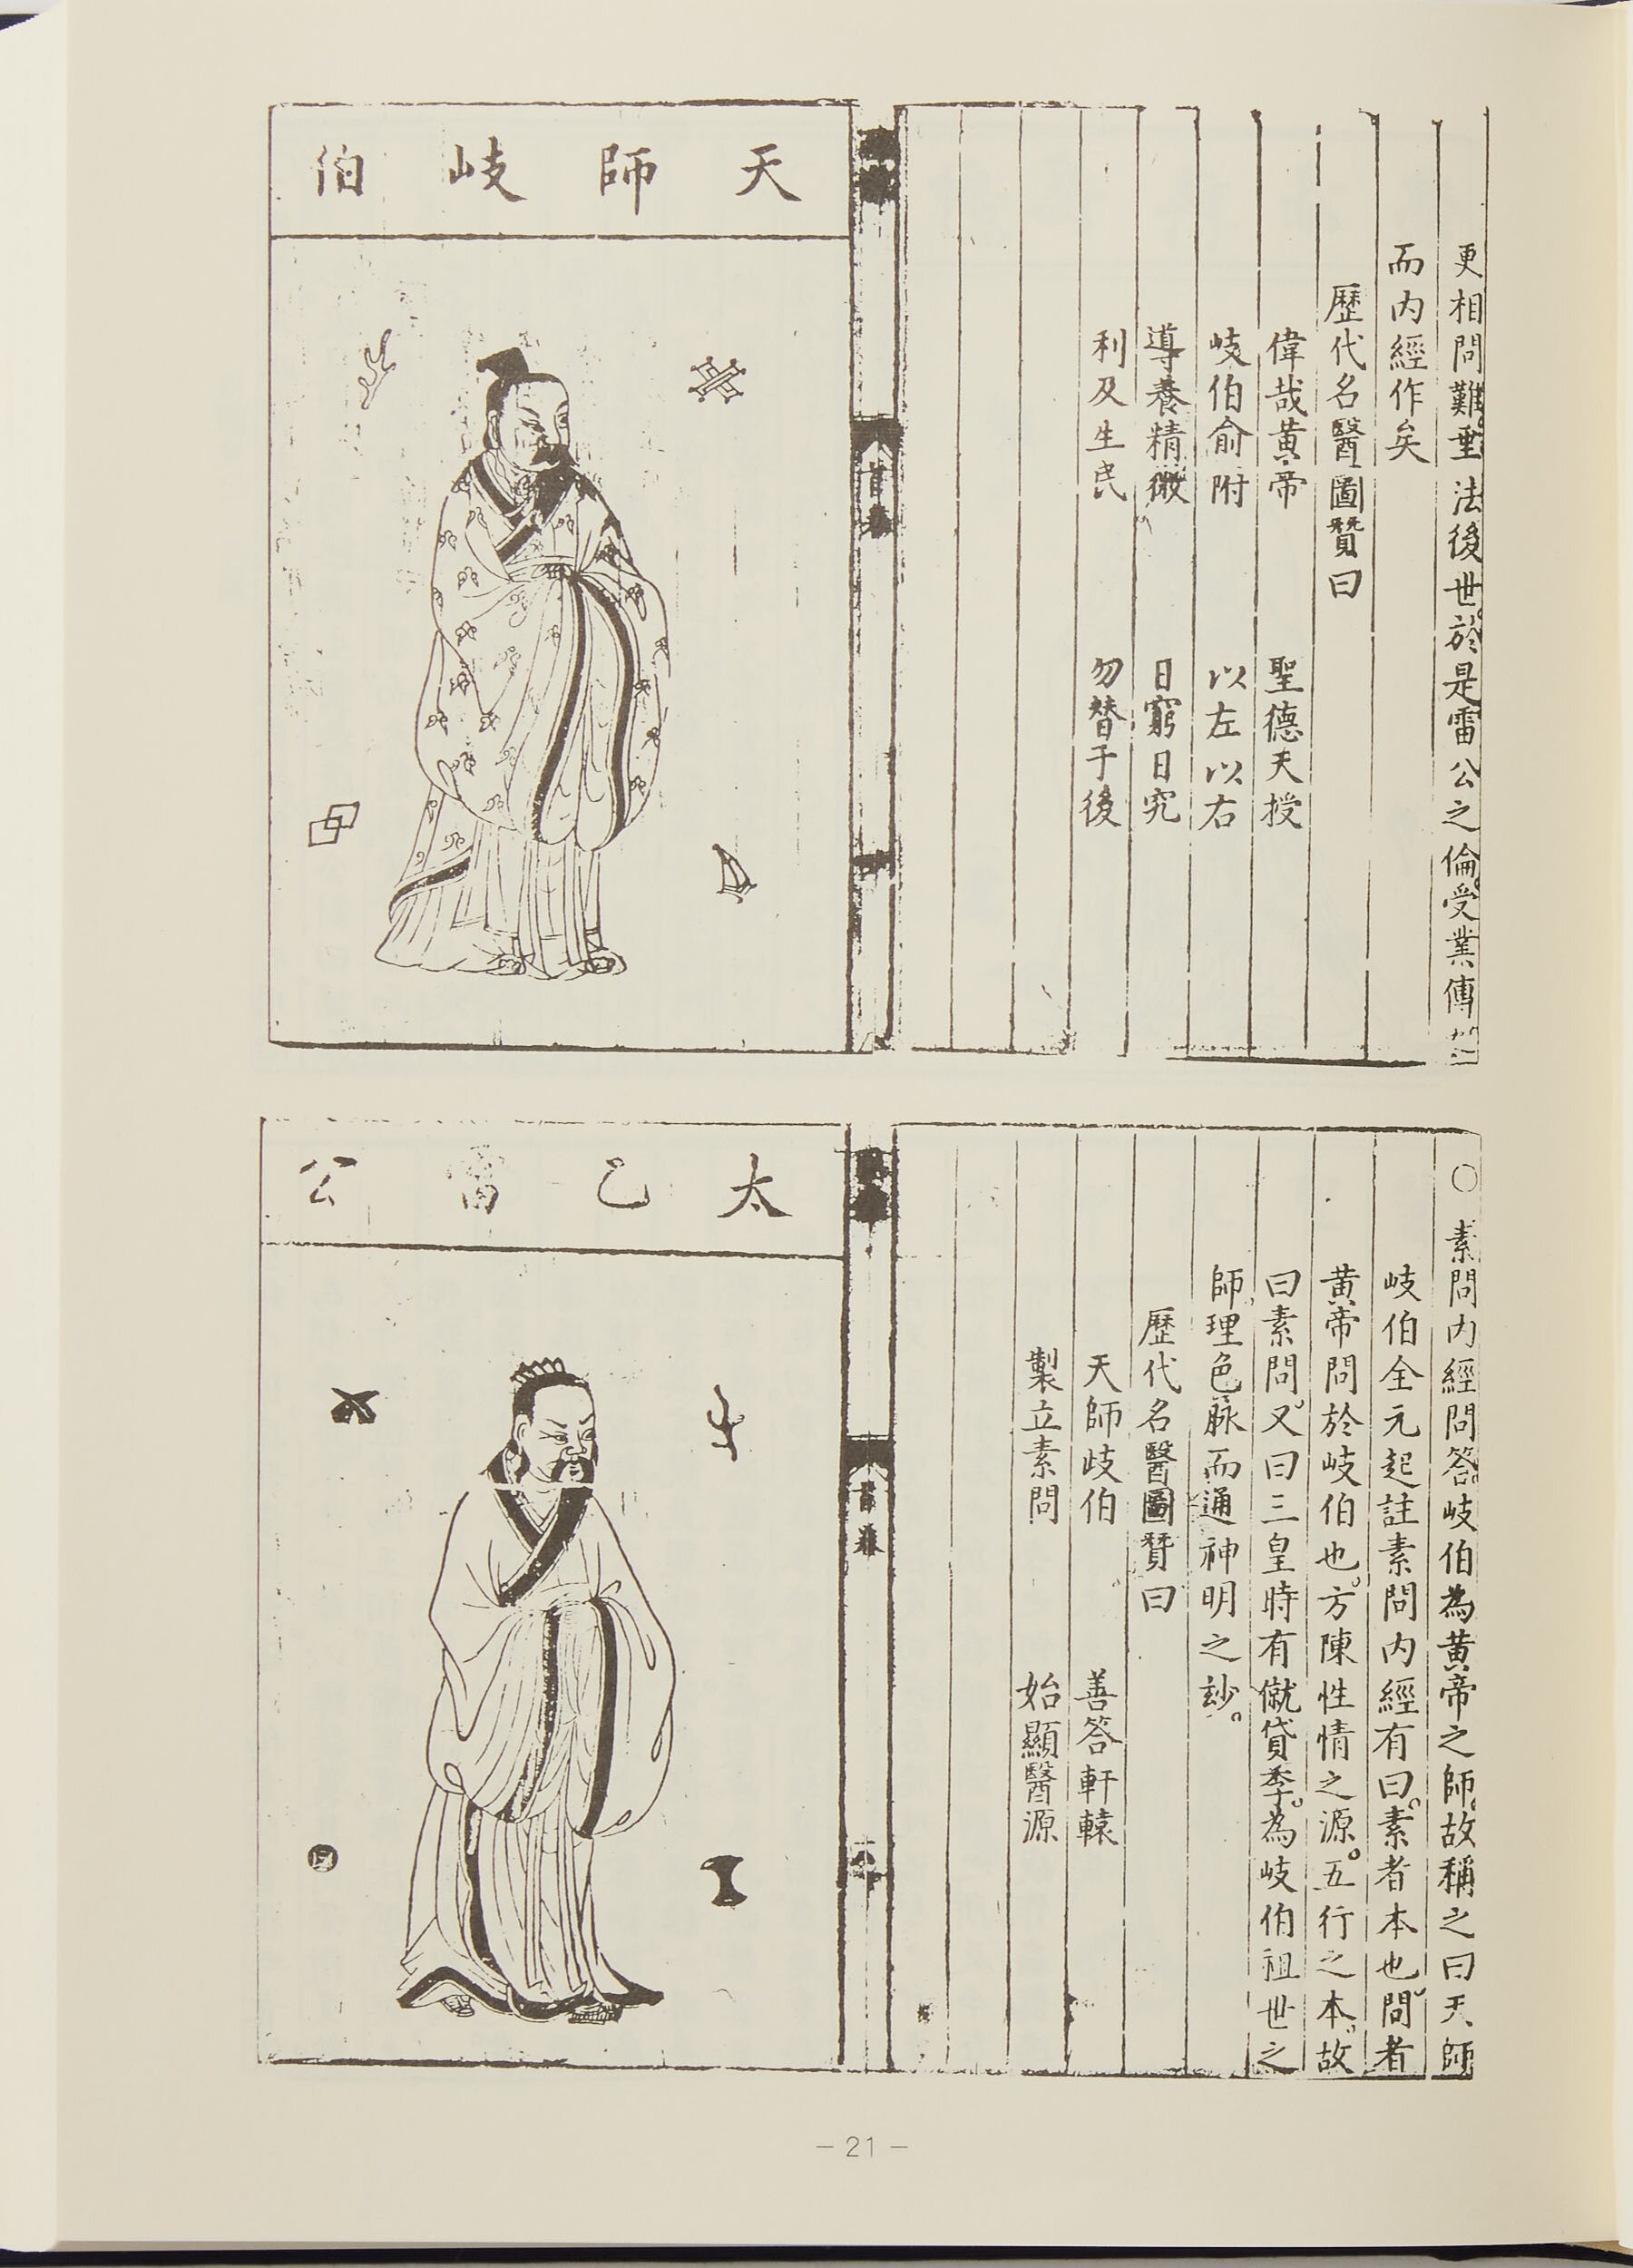 更相問難垂法後世於是雷公之倫受業傳之
而内經作矣
歷代名醫圖贊曰
偉哉黃帝 聖德天授
岐伯俞附 以左以右
導養精微 日窮日究
利及生民 勿替于後
首卷
天師岐伯
○素問内經問答岐伯為黃帝之師故稱之曰天師
岐伯全元起註素問内經有曰素者本也問者
黃帝問於岐伯也方陳性情之源五行之本故
曰素問又曰三皇時有僦貸季為岐伯祖世之
師理色脉而通神明之玅
歷代名醫圖贊曰
天師岐伯 善答軒轅
製立素問 始顯醫源
首卷
太乙雷公
- 21 -